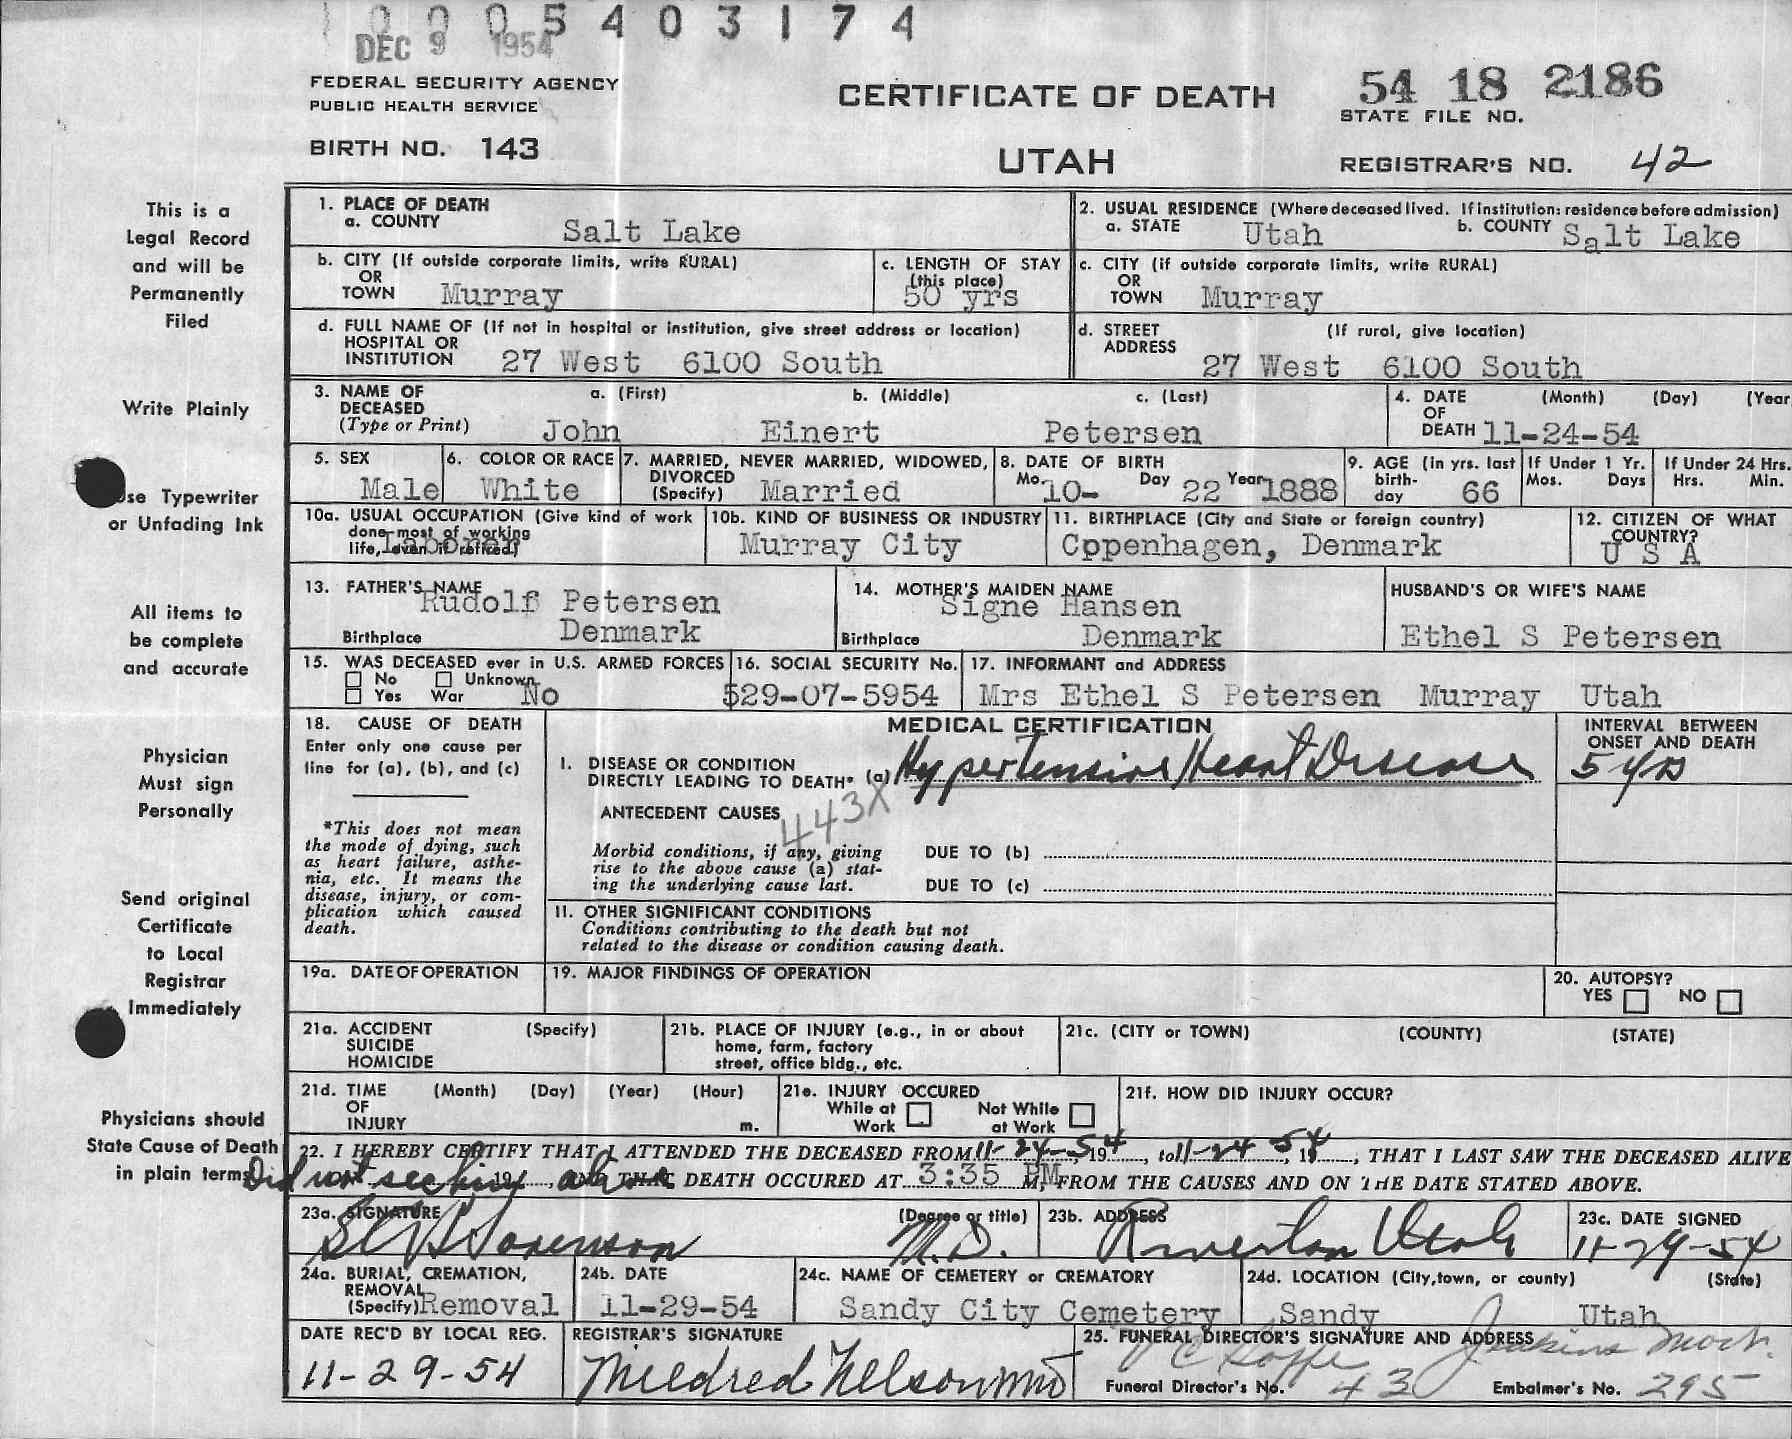 10005403174
DEC 9 1954
FEDERAL SECURITY AGENCY
PUBLIC HEALTH SERVICE
BIRTH NO. 143
CERTIFICATE OF DEATH
UTAH
54 18 2186
STATE FILE NO.
REGISTRAR'S NO. 42
This is a
Legal Record
and will be
Permanently
Filed
Write Plainly
Use Typewriter
or Unfading Ink
All items to
be complete
and accurate
Physician
Must sign
Personally
Send original
Certificate
to Local
Registrar
Immediately
Physicians should
State Cause of Death
in plain terms
1. PLACE OF DEATH
a. COUNTY Salt Lake
2. USUAL RESIDENCE (Where deceased lived. If institution: residence before admission)
a. STATE Utah b. COUNTY Salt Lake
b. CITY (If outside corporate limits, write RURAL)
OR
TOWN Murray
c. LENGTH OF STAY
(this place)
50 yrs
c. CITY (if outside corporate limits, write RURAL)
OR
TOWN Murray
d. FULL NAME OF (If not in hospital or institution, give street address or location)
HOSPITAL OR
INSTITUTION 27 West 6100 South
d. STREET (If rural, give location)
ADDRESS
27 West 6100 South
3. NAME OF a. (First) b. (Middle) c. (Last)
DECEASED
(Type or Print) John Einert Petersen
4. DATE (Month) (Day) (Year
OF
DEATH 11-24-54
5. SEX
Male
6. COLOR OR RACE
White
7. MARRIED, NEVER MARRIED, WIDOWED,
DIVORCED
(Specify) Married
8. DATE OF BIRTH
Mo. 10- Day 22 Year 1888
9. AGE (in yrs. last
birth-
day 66
If Under 1 Yr.
Mos. Days
If Under 24 Hrs.
Hrs. Min.
10a. USUAL OCCUPATION (Give kind of work
done most of working
life, even if retired)
Laborer
10b. KIND OF BUSINESS OR INDUSTRY
Murray City
11. BIRTHPLACE (City and State or foreign country)
Copenhagen, Denmark
12. CITIZEN OF WHAT
COUNTRY?
U S A
13. FATHER'S NAME
Rudolf Petersen
Birthplace Denmark
14. MOTHER'S MAIDEN NAME
Signe Hansen
Birthplace Denmark
HUSBAND'S OR WIFE'S NAME
Ethel S Petersen
15. WAS DECEASED ever in U.S. ARMED FORCES
No Unknown
Yes War No
16. SOCIAL SECURITY No.
529-07-5954
17. INFORMANT and ADDRESS
Mrs Ethel S Petersen Murray Utah
18. CAUSE OF DEATH
Enter only one cause per
line for (a), (b), and (c)
*This does not mean
the mode of dying, such
as heart failure, asthe-
nia, etc. It means the
disease, injury, or com-
plication which caused
death.
MEDICAL CERTIFICATION
I. DISEASE OR CONDITION
DIRECTLY LEADING TO DEATH* (a) Hypertensive Heart Disease
INTERVAL BETWEEN
ONSET AND DEATH
5 yrs
ANTECEDENT CAUSES
443X
Morbid conditions, if any, giving
rise to the above cause (a) stat-
ing the underlying cause last.
DUE TO (b)
DUE TO (c)
II. OTHER SIGNIFICANT CONDITIONS
Conditions contributing to the death but not
related to the disease or condition causing death.
19a. DATE OF OPERATION
19. MAJOR FINDINGS OF OPERATION
20. AUTOPSY?
YES NO
21a. ACCIDENT (Specify)
SUICIDE
HOMICIDE
21b. PLACE OF INJURY (e.g., in or about
home, farm, factory
street, office bldg., etc.
21c. (CITY or TOWN) (COUNTY) (STATE)
21d. TIME (Month) (Day) (Year) (Hour)
OF
INJURY m.
21e. INJURY OCCURED
While at Work
Not While at Work
21f. HOW DID INJURY OCCUR?
22. I HEREBY CERTIFY THAT I ATTENDED THE DECEASED FROM 11-24-54, 19, to 11-24 54, 19, THAT I LAST SAW THE DECEASED ALIVE
Did not see him alive 19, AND THAT DEATH OCCURED AT 3:35 PM M, FROM THE CAUSES AND ON THE DATE STATED ABOVE.
23a. SIGNATURE (Degree or title)
Sorenson M.D.
23b. ADDRESS
Riverton Utah
23c. DATE SIGNED
11-29-54
24a. BURIAL, CREMATION,
REMOVAL
(Specify) Removal
24b. DATE
11-29-54
24c. NAME OF CEMETERY or CREMATORY
Sandy City Cemetery
24d. LOCATION (City, town, or county) (State)
Sandy Utah
DATE REC'D BY LOCAL REG.
11-29-54
REGISTRAR'S SIGNATURE
Mildred Nelson
25. FUNERAL DIRECTOR'S SIGNATURE AND ADDRESS
Jenkins Mort.
Funeral Director's No. 43 Embalmer's No. 295